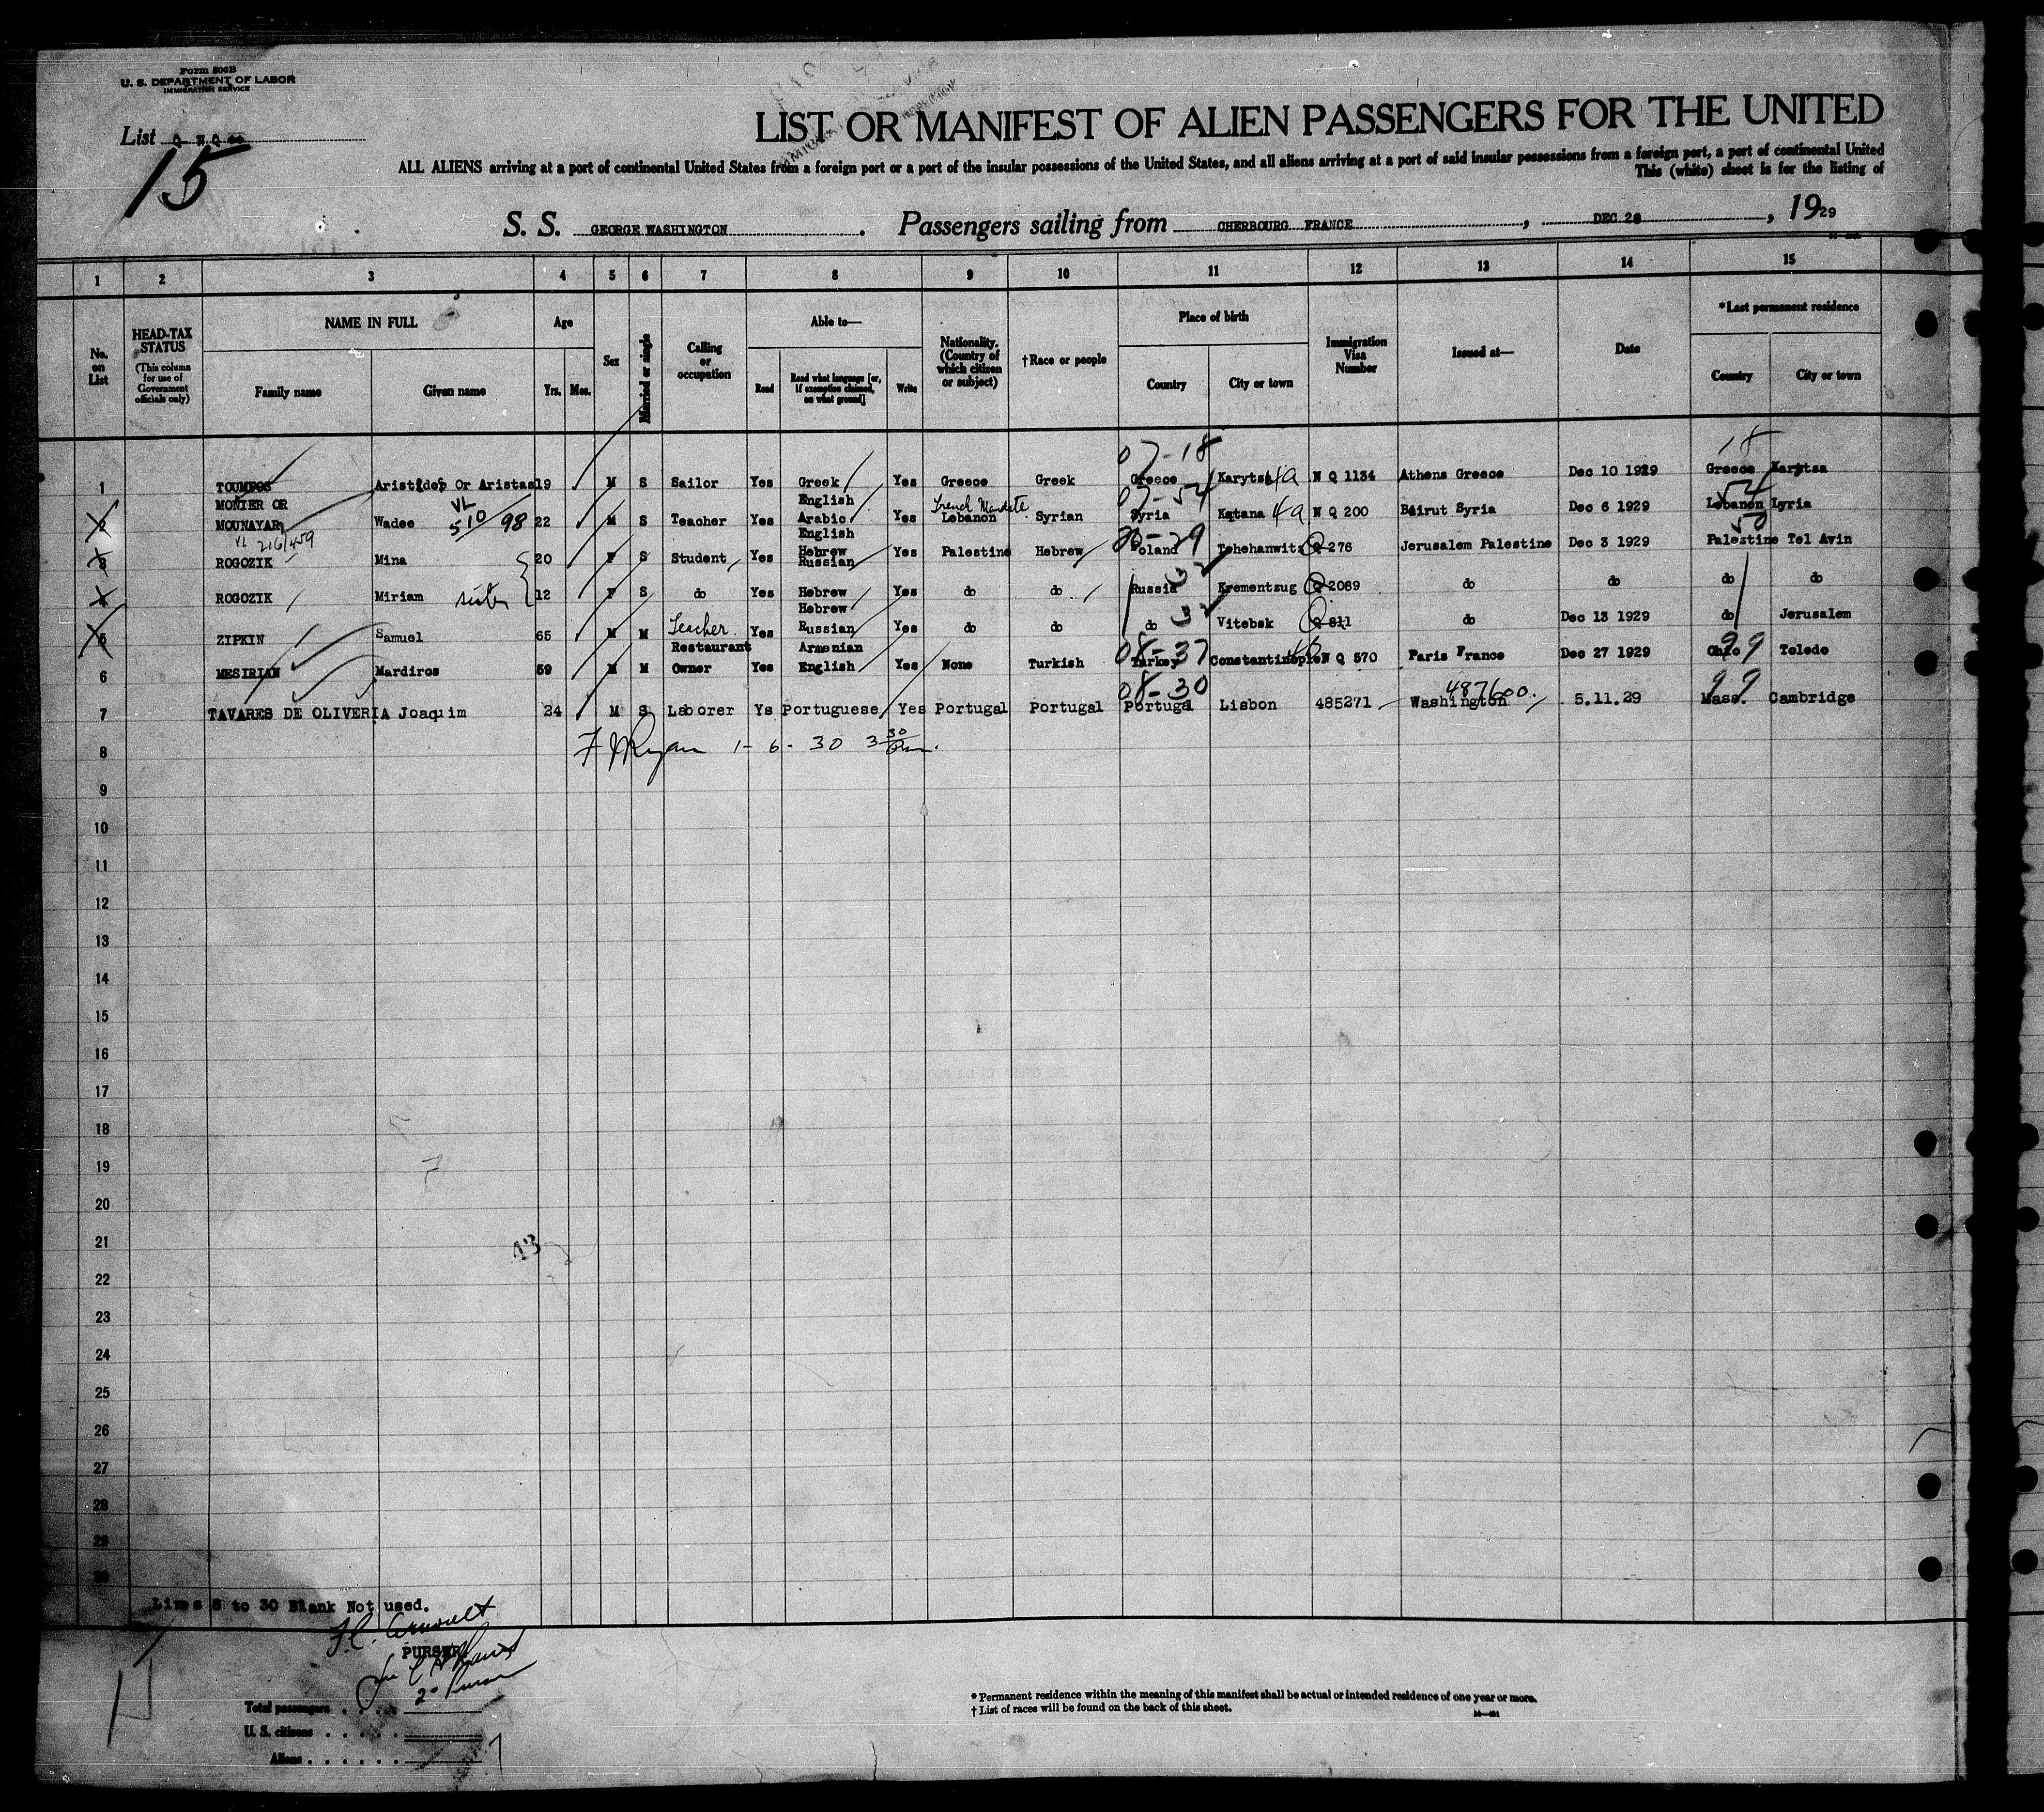 Form 500B
U. S. DEPARTMENT OF LABOR
IMMIGRATION SERVICE
List Q N Q
15
LIST OR MANIFEST OF ALIEN PASSENGERS FOR THE UNITED
ALL ALIENS arriving at a port of continental United States from a foreign port or a port of the insular possessions of the United States, and all aliens arriving at a port of said insular possessions from a foreign port, a port of continental United
This (white) sheet is for the listing of
S. S. GEORGE WASHINGTON. Passengers sailing from CHERBOURG FRANCE, DEC 28, 1929
1 2 3 4 5 6 7 8 9 10 11 12 13 14 15
No. on List
HEAD-TAX STATUS
(This column for use of Government officials only)
NAME IN FULL
Family name Given name
Age
Yrs. Mos.
Sex
Married or single
Calling or occupation
Able to—
Read Read what language [or, if exemption claimed, on what ground] Write
Nationality. (Country of which citizen or subject)
†Race or people
Place of birth
Country City or town
Immigration Visa Number
Issued at—
Date
*Last permanent residence
Country City or town
07-18 18
1 TOUMPOS Aristides Or Aristas 19 M S Sailor Yes Greek Yes Greece Greek Greece Karytsa 4a N Q 1134 Athens Greece Dec 10 1929 Greece Karytsa
MONIER OR VL English French Mandate 07-54 54
2 MOUNAYAR Wadee 510/98 22 M S Teacher Yes Arabic Yes Lebanon Syrian Syria Katana 4a N Q 200 Beirut Syria Dec 6 1929 Lebanon Lyria
VL 216/459 English 29 50
3 ROGOZIK Mina 20 F S Student Yes Hebrew Russian Yes Palestine Hebrew Poland Tchehanwitz Q 276 Jerusalem Palestine Dec 3 1929 Palestine Tel Avin
4 ROGOZIK Miriam sister 12 F S do Yes Hebrew Yes do do Russia Krementzug Q 2089 do do do do
Hebrew
5 ZIPKIN Samuel 65 M M Teacher Yes Russian Yes do do do Vitebsk Q 811 do Dec 13 1929 do Jerusalem
Restaurant Armenian 08-37 99
6 MESIRIAN Mardiros 59 M M Owner Yes English Yes None Turkish Turkey Constantinople N Q 570 Paris France Dec 27 1929 Ohio Toledo
08-30 487600. 99
7 TAVARES DE OLIVERIA Joaquim 34 M S Laborer Ys Portuguese Yes Portugal Portugal Portugal Lisbon 485271 Washington 5.11.29 Mass. Cambridge
8 F J Ryan 1-6-30 3 30 Pm.
9
10
11
12
13
14
15
16
17
18
19
20
21
43
22
23
24
25
26
27
28
29
30
Lines 8 to 30 Blank Not used.
PURSER
Total passengers
U. S. citizens
Aliens
7
* Permanent residence within the meaning of this manifest shall be actual or intended residence of one year or more.
† List of races will be found on the back of this sheet.